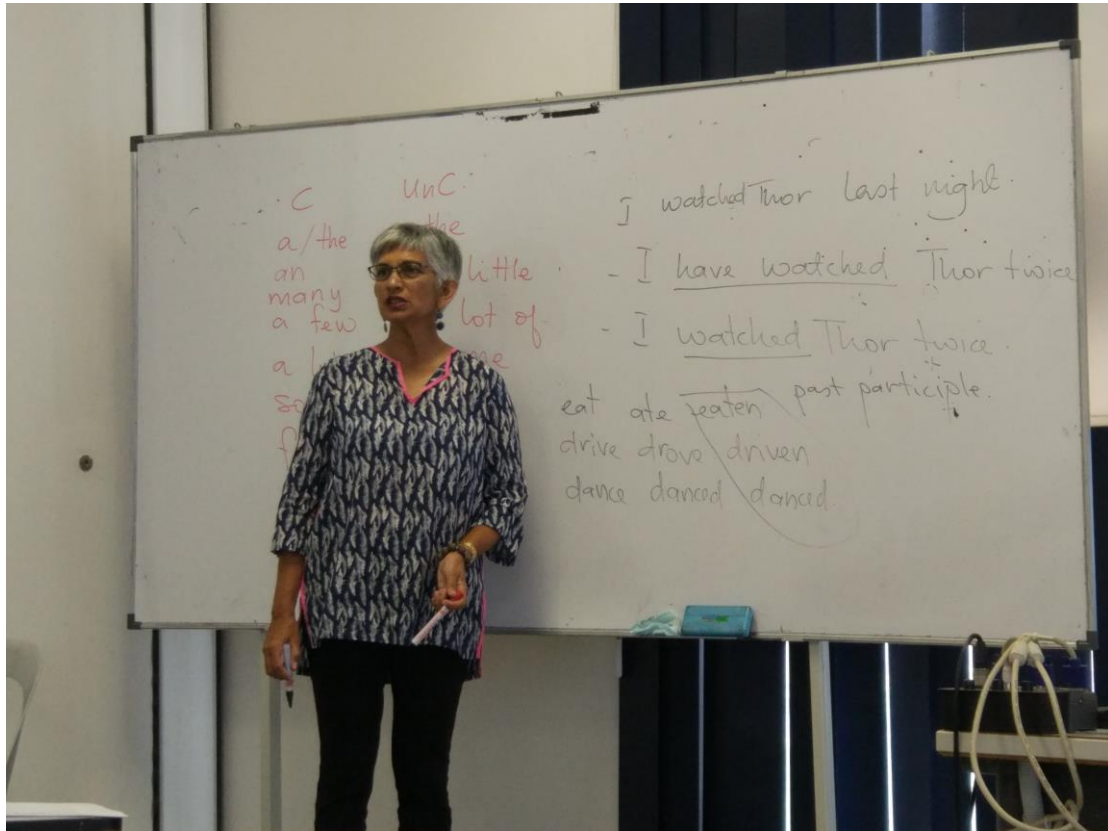 C UnC.
a/the the
an little
many
a few lot of
a
I watched Thor last night.
- I have watched Thor twice
- I watched Thor twice.
eat ate eaten past participle.
drive drove driven
dance danced danced